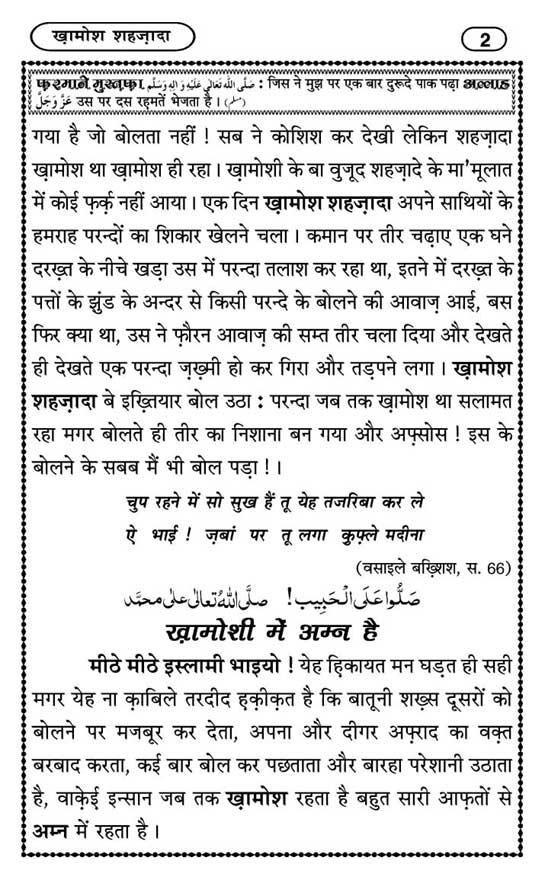 ख़ामोश शहज़ादा
2
फ़रमाने मुस्तफ़ा صَلَّى اللهُ تَعَالٰى عَلَيْهِ وَاٰلِهٖ وَسَلَّم : जिस ने मुझ पर एक बार दुरूदे पाक पढ़ा अल्लाह
عَزَّوَجَلَّ उस पर दस रहमतें भेजता है। (مسلم)
गया है जो बोलता नहीं ! सब ने कोशिश कर देखी लेकिन शहज़ादा
ख़ामोश था ख़ामोश ही रहा। ख़ामोशी के बा वुजूद शहज़ादे के मा'मूलात
में कोई फ़र्क़ नहीं आया। एक दिन ख़ामोश शहज़ादा अपने साथियों के
हमराह परन्दों का शिकार खेलने चला। कमान पर तीर चढ़ाए एक घने
दरख़्त के नीचे खड़ा उस में परन्दा तलाश कर रहा था, इतने में दरख़्त के
पत्तों के झुंड के अन्दर से किसी परन्दे के बोलने की आवाज़ आई, बस
फिर क्या था, उस ने फ़ौरन आवाज़ की सम्त तीर चला दिया और देखते
ही देखते एक परन्दा ज़ख़्मी हो कर गिरा और तड़पने लगा। ख़ामोश
शहज़ादा बे इख़्तियार बोल उठा : परन्दा जब तक ख़ामोश था सलामत
रहा मगर बोलते ही तीर का निशाना बन गया और अफ़्सोस ! इस के
बोलने के सबब मैं भी बोल पड़ा !।
चुप रहने में सो सुख हैं तू येह तजरिबा कर ले
ऐ भाई ! ज़बां पर तू लगा कुफ़्ले मदीना
(वसाइले बख़्शिश, स. 66)
صَلُّوا عَلَى الْحَبِيب! صلَّى اللهُ تعالٰى على محمَّد
ख़ामोशी में अम्न है
मीठे मीठे इस्लामी भाइयो ! येह हि़कायत मन घड़त ही सही
मगर येह ना क़ाबिले तरदीद ह़क़ीक़त है कि बातूनी शख़्स दूसरों को
बोलने पर मजबूर कर देता, अपना और दीगर अफ़्राद का वक़्त
बरबाद करता, कई बार बोल कर पछताता और बारहा परेशानी उठाता
है, वाक़ेई इन्सान जब तक ख़ामोश रहता है बहुत सारी आफ़तों से
अम्न में रहता है।